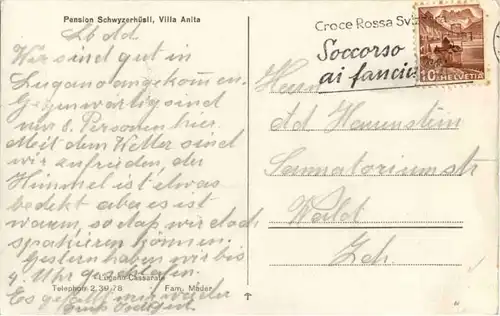 Pension Schwyzerhüsli, Villa Anita
Lb dd
Wir sind gut in
Lugano angekommen.
Gegenwärtig sind
nur 8. Personen hier.
Mit dem Wetter sind
wir zufrieden, der
Himmel ist etwas
bedekt aber es ist
warm, so dass wir doch
spatzieren können.
Gestern haben wir bis
9 Uhr geschlafen.
Lugano-Cassarate
Telephon 2.39.78 Fam. Mader
Es gefällt mir wieder
Croce Rossa Sviz
Soccorso
ai fanciu
10 HELVETIA
Herrn
dd Hauenstein
Sanatoriumstr
Wald
Zch.